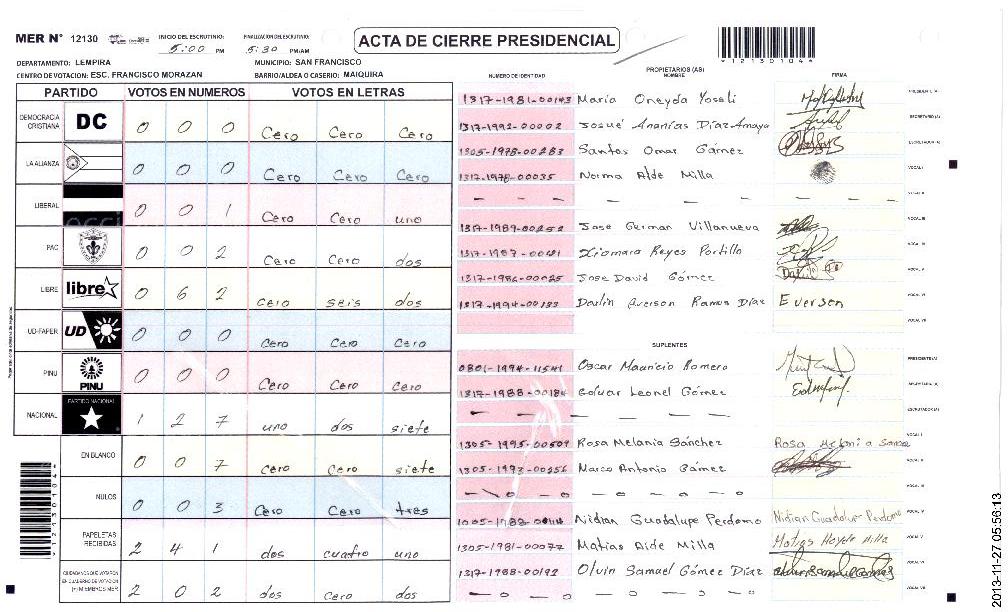 MER N° 12130
INICIO DEL ESCRUTINIO: 5:00 PM
FINALIZACIÓN DEL ESCRUTINIO: 5:30 PM/AM
ACTA DE CIERRE PRESIDENCIAL
*121301044*
DEPARTAMENTO: LEMPIRA
MUNICIPIO: SAN FRANCISCO
CENTRO DE VOTACION: ESC. FRANCISCO MORAZAN
BARRIO/ALDEA O CASERIO: MAIQUIRA
PARTIDO VOTOS EN NUMEROS VOTOS EN LETRAS
DEMOCRACIA CRISTIANA DC 0 0 0 Cero Cero Cero
LA ALIANZA 0 0 0 Cero Cero Cero
LIBERAL 0 0 1 Cero Cero uno
PAC 0 0 2 Cero Cero dos
LIBRE libre 0 6 2 Cero seis dos
UD-FAPER UD 0 0 0 Cero Cero Cero
PINU PINU 0 0 0 Cero Cero Cero
NACIONAL PARTIDO NACIONAL 1 2 7 uno dos siete
EN BLANCO 0 0 7 Cero Cero siete
NULOS 0 0 3 Cero Cero tres
PAPELETAS RECIBIDAS 2 4 1 dos cuatro uno
CIUDADANOS QUE VOTARON EN CUADERNO DE VOTACION (+) MIEMBROS MER 2 0 2 dos Cero dos
PROPIETARIOS (AS)
NUMERO DE IDENTIDAD NOMBRE FIRMA
1317-1981-00143 Maria Oneyda Yoseli PRESIDENTE (A)
1317-1992-00002 Josué Ananías Díaz Amaya SECRETARIO (A)
1305-1978-00283 Santos Omar Gámez ESCRUTADOR (A)
1317-1978-00035 Norma Aide Milla VOCAL I
- - - - - - - VOCAL II
1317-1989-00252 Jose German Villanueva VOCAL III
1317-1987-00181 Xiomara Reyes Portillo VOCAL IV
1317-1986-00025 Jose David Gómez David VOCAL V
1317-1994-00133 Darlin Everson Ramos Díaz Everson VOCAL VI
VOCAL VII
SUPLENTES
0801-1994-11541 Oscar Mauricio Romero PRESIDENTE (A)
1317-1988-00184 Edvar Leonel Gómez SECRETARIO (A)
- - - - - - ESCRUTADOR (A)
1305-1995-00509 Rosa Melania Sánchez Rosa Melania VOCAL I
1305-1973-00256 Marco Antonio Gámez VOCAL II
VOCAL III
Nidian Guadalupe Perdomo Nidian Guadalupe Perdomo VOCAL IV
1305-1981-00077 Matias Aide Milla Matias Hayde Milla VOCAL V
1317-1988-00192 Olvin Samuel Gómez Díaz VOCAL VI
VOCAL VII
2013-11-27 05:56:13